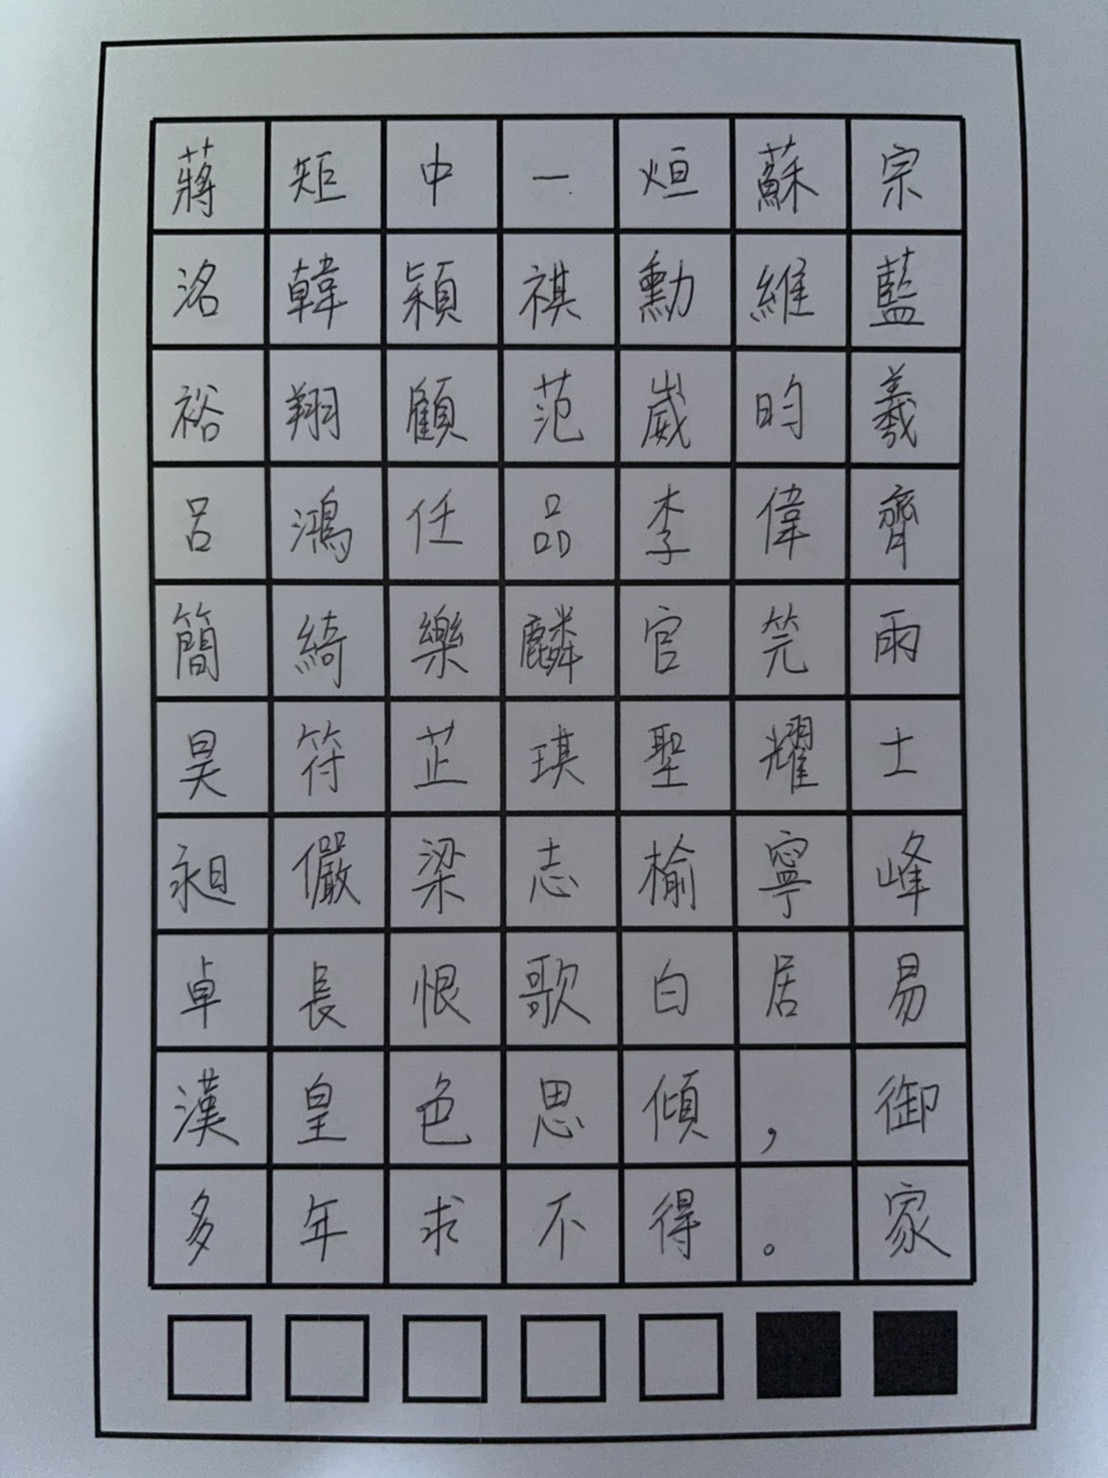 蔣矩中一烜蘇宗
洺韓穎祺勳維藍
裕翔顧范崴昀羲
呂鴻任品李偉齊
簡綺樂麟官筦雨
昊符芷琪聖耀士
昶儼梁志榆寧峰
卓長恨歌白居易
漢皇色思傾，御
多年求不得。家